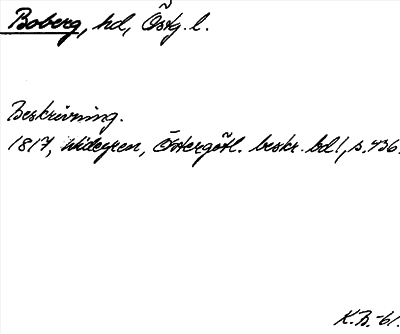 Boberg, hd, Östg. l.
Beskrivning.
1817, Widegren, Östergötl. beskr. bd 1, s. 436.
K.B. -61.